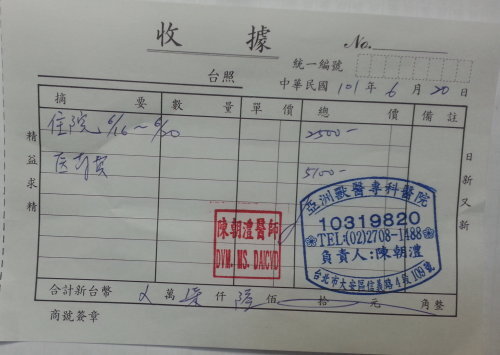 收 據
No.
統一編號
台照
中華民國 101 年 6 月 20 日
摘 要 數 量 單 價 總 價 備 註
住院 6/16~6/20 2500-
5100-
精益求精
日新又新
陳朝澧醫師
DVM. MS. DAICVD
亞洲獸醫專科醫院
10319820
TEL:(02)2708-1488
負責人:陳朝澧
台北市大安區信義路4段109號
合計新台幣 萬 柒 仟 陸 佰 拾 元 角整
商號簽章